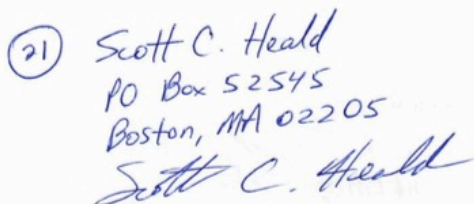 21 Scott C. Heald
PO Box 52545
Boston, MA 02205
Scott C. Heald